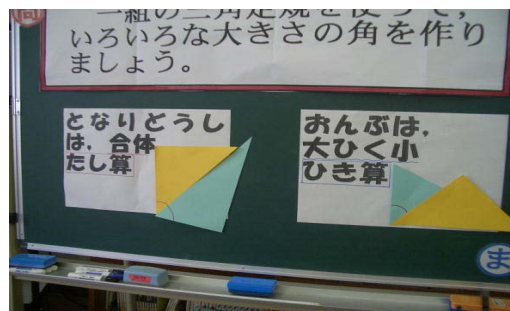 問
一組の三角定規を使って，
いろいろな大きさの角を作り
ましょう。
となりどうし
は，合体
たし算
おんぶは，
大ひく小
ひき算
ま